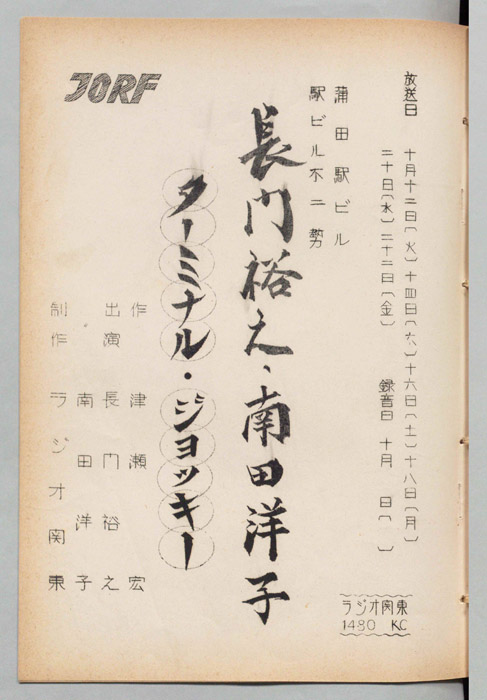 放送日 十月十二日(火)十四日(木)十六日(土)十八日(月)
二十日(水)二十二日(金) 録音日 十月 日( )
蒲田駅ビル
駅ビル不二勢
長門裕之、南田洋子
ターミナル・ジョッキー
作 津瀬宏
出演 長門裕之
南田洋子
制作 ラジオ関東
JORF
ラジオ関東
1480 KC